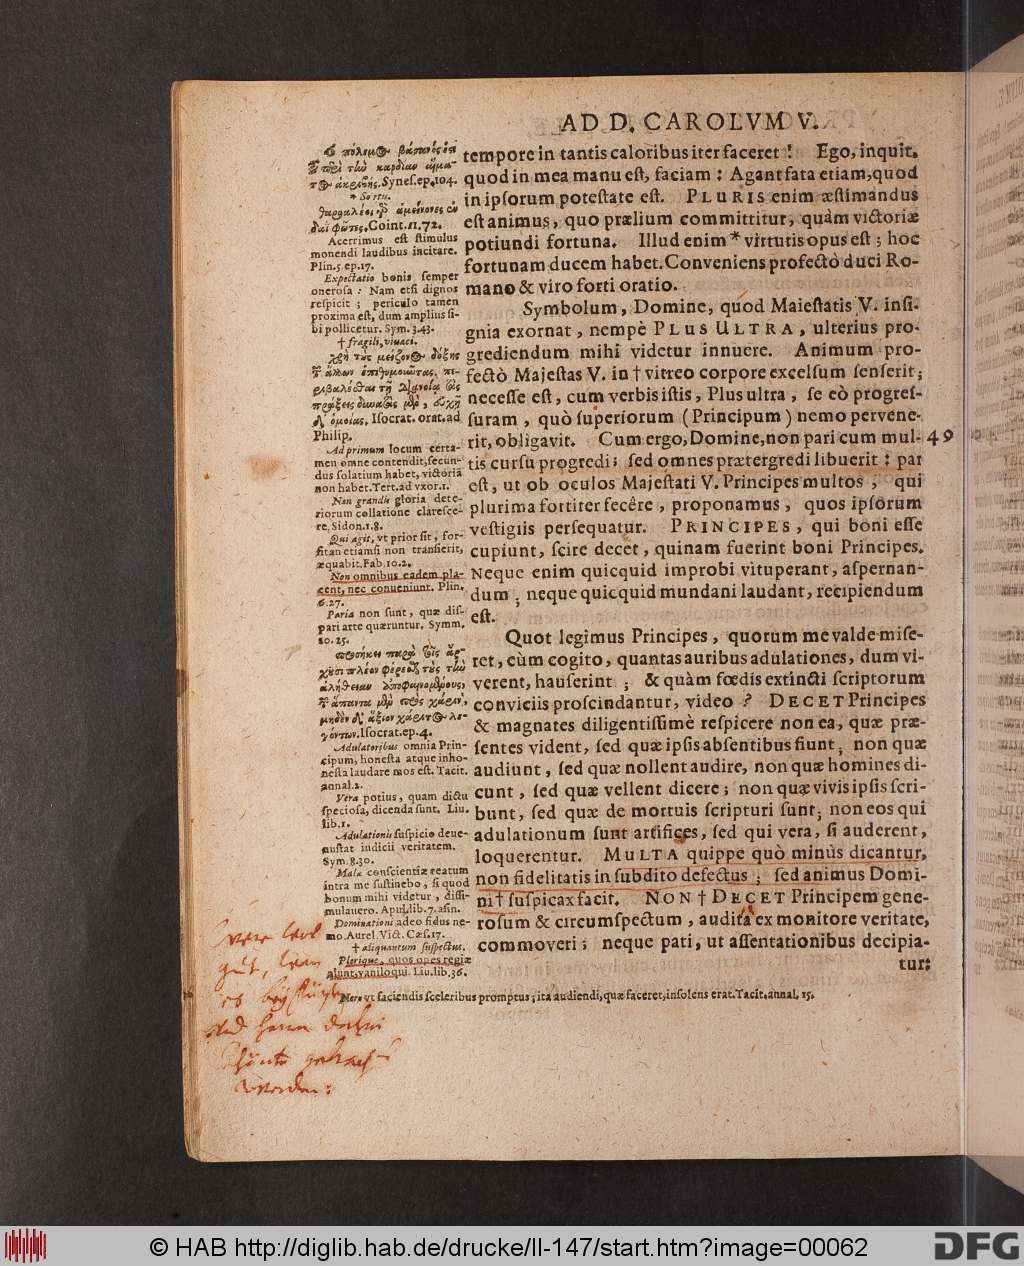 AD D. CAROLVM V.
tempore in tantis caloribus iter faceret! Ego, inquit,
quod in mea manu eſt, faciam: Agant fata etiam, quod
in ipſorum poteſtate eſt. PLURIS enim æſtimandus
eſt animus, quo prælium committitur, quàm victoriæ
potiundi fortuna. Illud enim * virtutis opus eſt; hoc
fortunam ducem habet. Conveniens profectò duci Ro-
mano & viro forti oratio.
Symbolum, Domine, quod Maieſtatis V. inſi-
gnia exornat, nempè PLUS ULTRA, ulterius pro-
grediendum mihi videtur innuere. Animum pro-
fectò Majeſtas V. in † vitreo corpore excelſum ſenſerit;
neceſſe eſt, cum verbis iſtis, Plus ultra, ſe eò progreſ-
ſuram, quò ſuperiorum (Principum) nemo pervene-
rit, obligavit. Cum ergo, Domine, non pari cum mul-
49
tis curſu progredi; ſed omnes prætergredi libuerit: par
eſt, ut ob oculos Majeſtati V. Principes multos, qui
plurima fortiter fecêre, proponamus, quos ipſorum
veſtigiis perſequatur. PRINCIPES, qui boni eſſe
cupiunt, ſcire decet, quinam fuerint boni Principes.
Neque enim quicquid improbi vituperant, aſpernan-
dum; neque quicquid mundani laudant, recipiendum
eſt.
Quot legimus Principes, quorum me valde miſe-
ret, cùm cogito, quantas auribus adulationes, dum vi-
verent, hauſerint; & quàm fœdis extincti ſcriptorum
conviciis proſcindantur, video? DECET Principes
& magnates diligentiſſimè reſpicere non ea, quæ præ-
ſentes vident, ſed quæ ipſis abſentibus fiunt; non quæ
audiunt, ſed quæ nollent audire, non quæ homines di-
cunt, ſed quæ vellent dicere; non quæ vivis ipſis ſcri-
bunt, ſed quæ de mortuis ſcripturi ſunt; non eos qui
adulationum ſunt artifices, ſed qui vera, ſi auderent,
loquerentur. MULTA quippe quò minùs dicantur,
non fidelitatis in ſubdito defectus; ſed animus Domi-
ni † ſuſpicax facit. NON † DECET Principem gene-
roſum & circumſpectum, audita ex monitore veritate,
commoveri; neque pati, ut aſſentationibus decipia-
tur:
Synef. ep. 104.
* Sortu.
Coint. 11. 72.
Acerrimus eſt ſtimulus
monendi laudibus incitare.
Plin. 5 ep. 17.
Expectatio bonis ſemper
oneroſa: Nam etſi dignos
reſpicit; periculo tamen
proxima eſt, dum amplius ſi-
bi pollicetur. Sym. 3. 43.
† fragili, vivaci.
Iſocrat. orat. ad
Philip.
Ad primum locum certa-
men omne contendit, ſecun-
dus ſolatium habet, victoria
non habet. Tert. ad vxor. 1.
Non grandis gloria dete-
riorum collatione clareſce-
re. Sidon. 1. 8.
Qui agit, vt prior ſit, for-
ſitan etiamſi non tranſierit,
æquabit. Fab. 10. 2.
Non omnibus eadem pla-
cent, nec conueniunt. Plin.
6. 27.
Paria non ſunt, quæ diſ-
pari arte quæruntur. Symm.
10. 25.
Iſocrat. ep. 4.
Adulatoribus omnia Prin-
cipum, honeſta atque inho-
neſta laudare mos eſt. Tacit.
annal. 2.
Vera potius, quam dictu
ſpecioſa, dicenda ſunt. Liu.
lib. 1.
Adulationis ſuſpicio deue-
nuſtat iudicii veritatem.
Sym. 8. 30.
Malæ conſcientiæ reatum
intra me ſuſtinebo, ſi quod
bonum mihi videtur, diſſi-
mulauero. Apul. lib. 7. aſin.
Dominationi adeo fidus ne-
mo. Aurel. Vict. Cæſ. 17.
† aliquantum ſuſpectus.
Plerique, quos opes regiæ
alunt, vaniloqui. Liu. lib. 36.
Nero vt faciendis ſceleribus promptus; ita audiendi, quæ faceret, inſolens erat. Tacit. annal. 15.
werden:
© HAB http://diglib.hab.de/drucke/ll-147/start.htm?image=00062
DFG